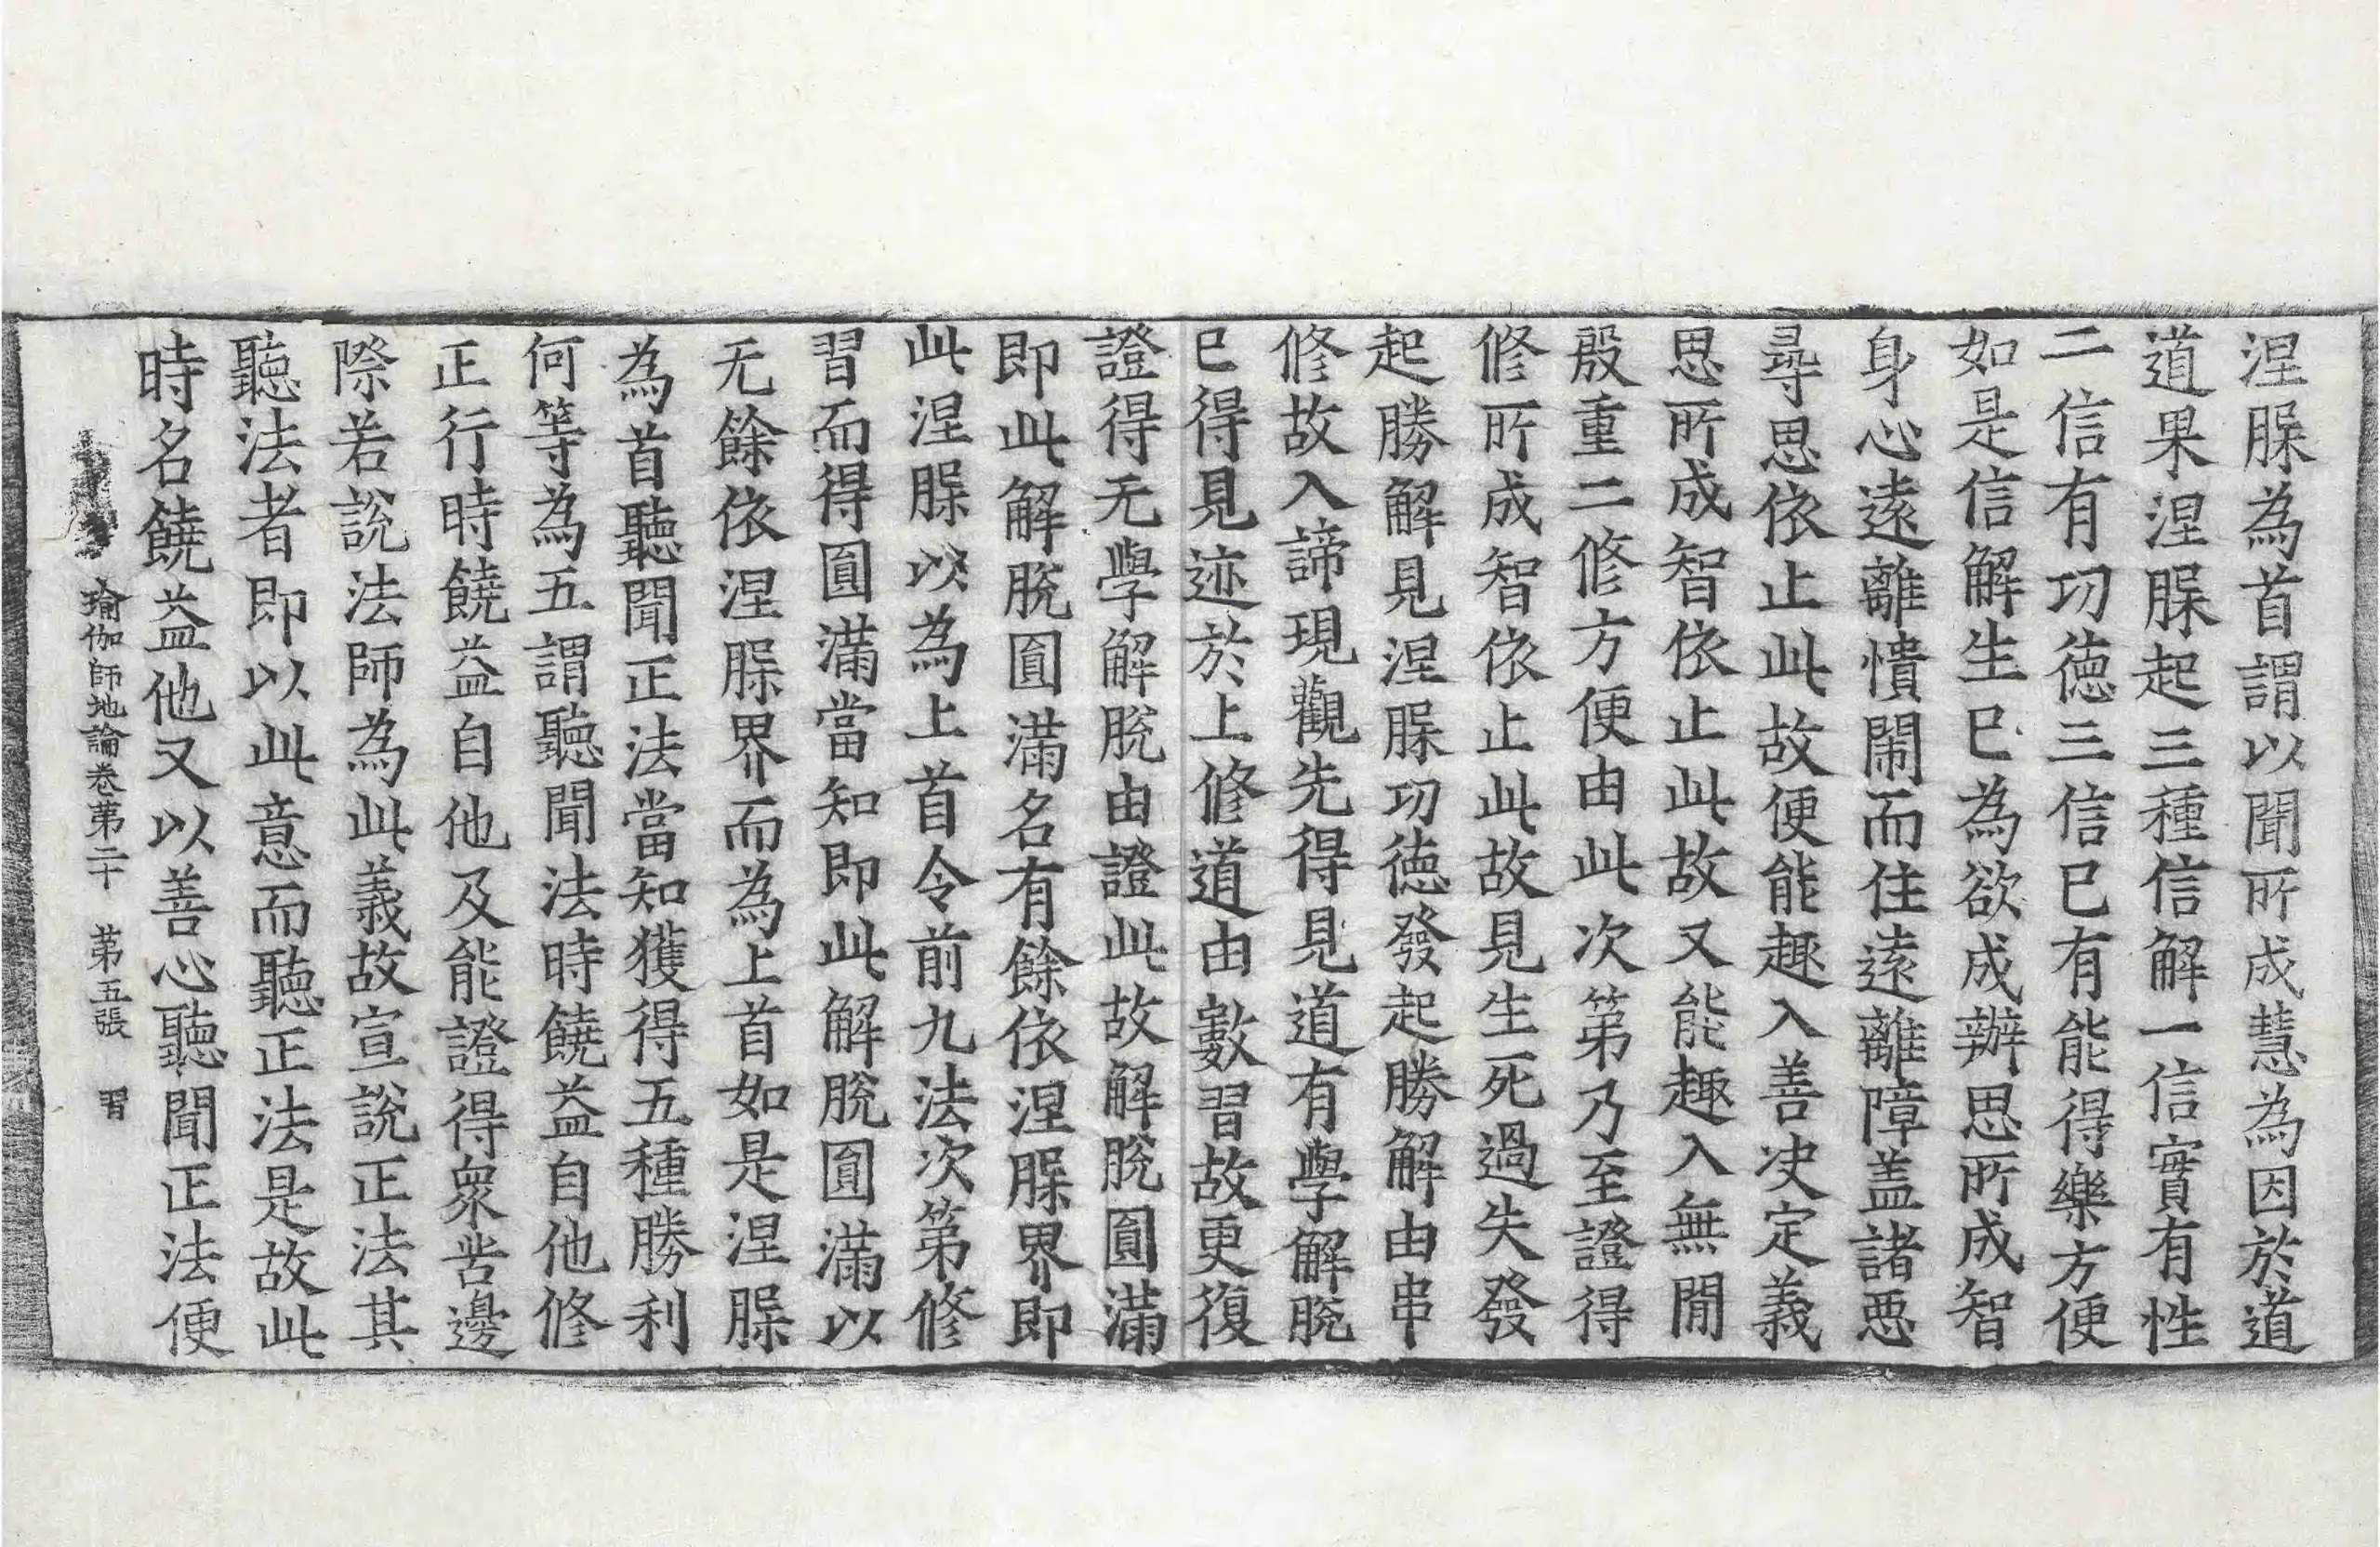 涅槃為首謂以聞所成慧為因於道
道果涅槃起三種信解一信實有性
二信有功德三信已有能得樂方便
如是信解生已為欲成辦思所成智
身心遠離憒閙而住遠離障蓋諸惡
尋思依止此故便能趣入善決定義
思所成智依止此故又能趣入無閒
殷重二修方便由此次第乃至證得
修所成智依止此故見生死過失發
起勝解見涅槃功德發起勝解由串
修故入諦現觀先得見道有學解脫
已得見迹於上修道由數習故更復
證得无學解脫由證此故解脫圓滿
即此解脫圓滿名有餘依涅槃界即
此涅槃以為上首令前九法次第修
習而得圓滿當知即此解脫圓滿以
无餘依涅槃界而為上首如是涅槃
為首聽聞正法當知獲得五種勝利
何等為五謂聽聞法時饒益自他修
正行時饒益自他及能證得衆苦邊
際若說法師為此義故宣說正法其
聽法者即以此意而聽正法是故此
時名饒益他又以善心聽聞正法便
瑜伽師地論卷第二十 第五張 習